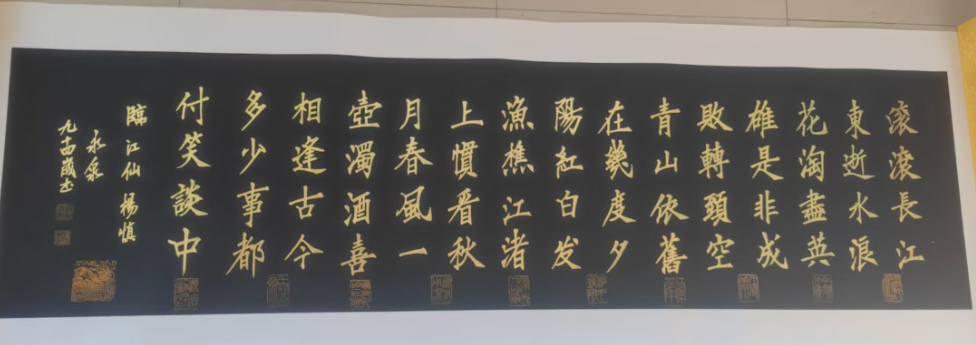 滚滚長江
東逝水浪
花淘盡英
雄是非成
敗轉頭空
青山依舊
在㡬度夕
陽紅白发
漁樵江渚
上慣看秋
月春風一
壺濁酒喜
相逢古今
多少事都
付笑談中
臨江仙 楊慎
永泉
九十四歲书